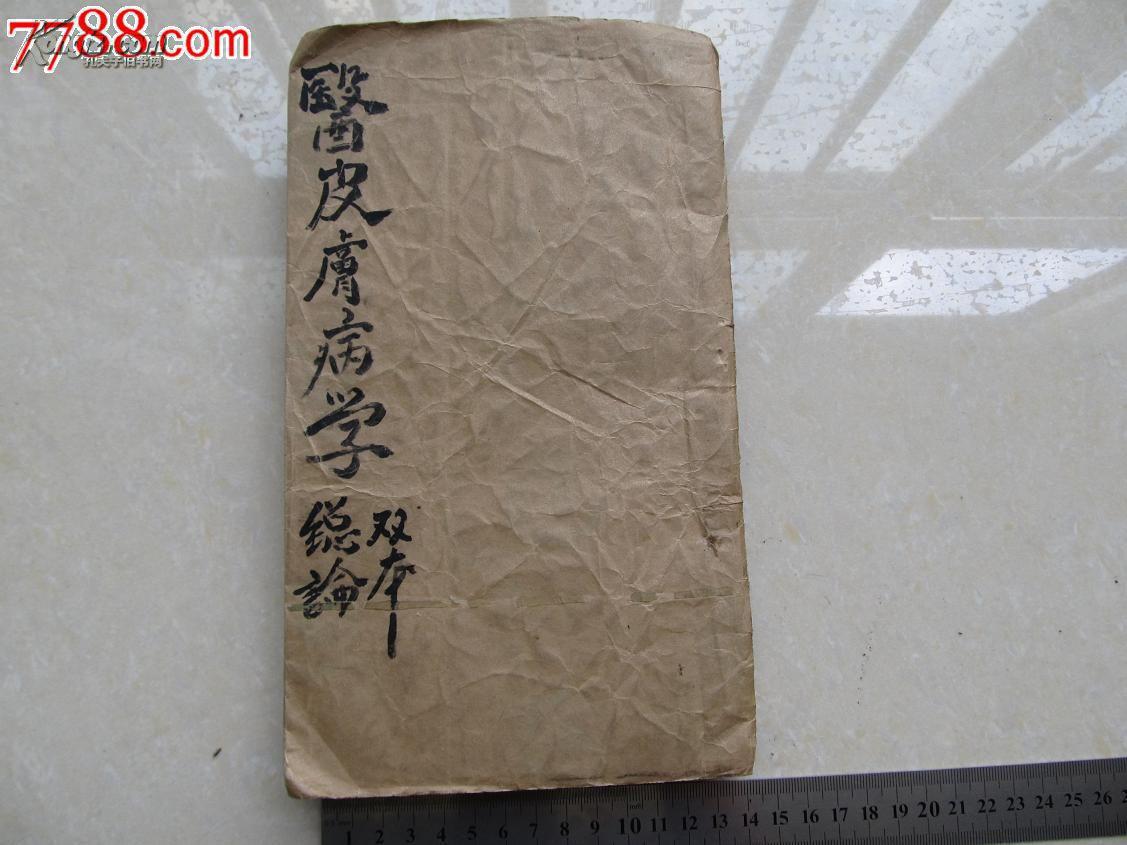 7788.com
Kongfz.com
孔夫子旧书网
醫皮膚病学
双本
總論
1 2 3 4 5 6 7 8 9 10 11 12 13 14 15 16 17 18 19 20 21 22 23 24 25 26